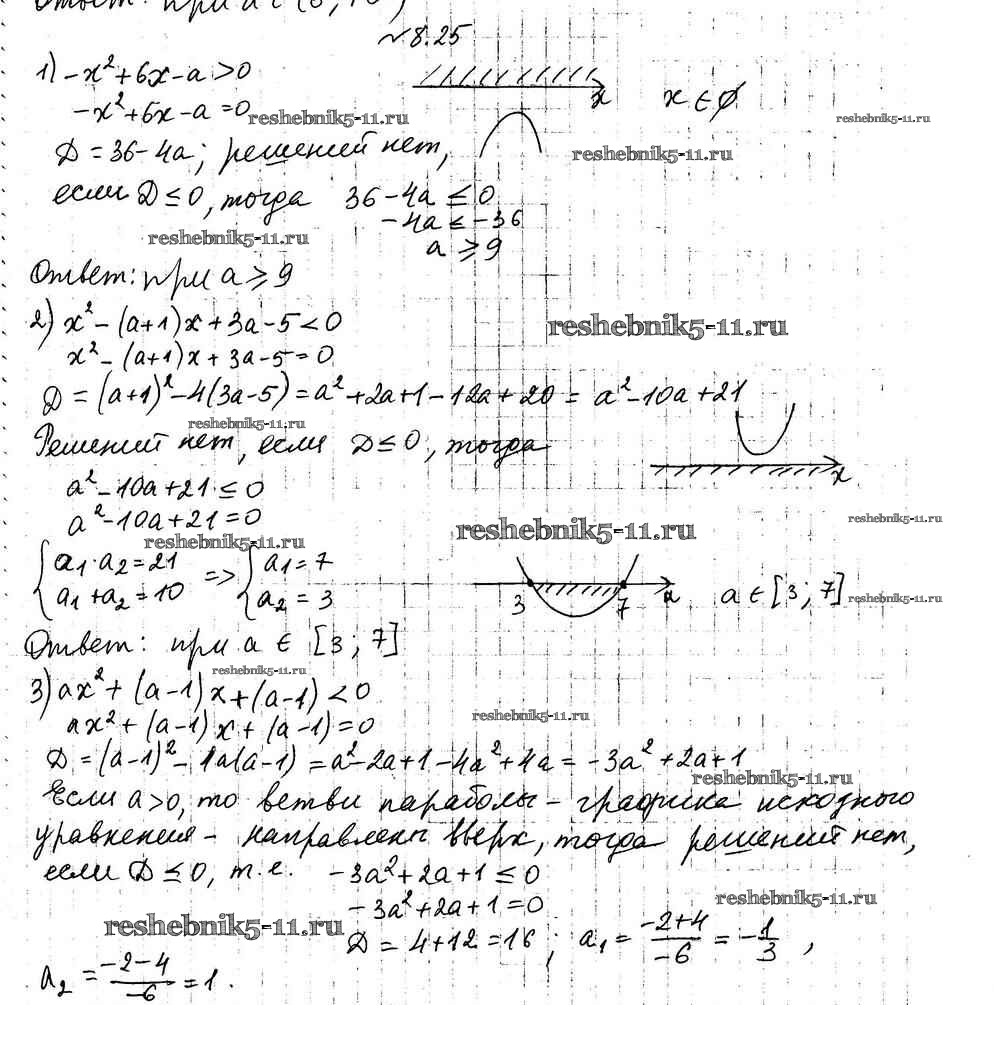 Ответ: при a ∈ (
№8.25
1) -x² + 6x - a > 0
x
x ∈ ∅
-x² + 6x - a = 0
reshebnik5-11.ru
reshebnik5-11.ru
D = 36 - 4a; решений нет,
reshebnik5-11.ru
если D ≤ 0, тогда 36 - 4a ≤ 0
-4a ≤ -36
reshebnik5-11.ru
a ≥ 9
Ответ: при a ≥ 9
2) x² - (a+1)x + 3a - 5 < 0
reshebnik5-11.ru
x² - (a+1)x + 3a - 5 = 0
D = (a+1)² - 4(3a-5) = a² + 2a + 1 - 12a + 20 = a² - 10a + 21
reshebnik5-11.ru
Решений нет, если D ≤ 0, тогда
x
a² - 10a + 21 ≤ 0
a² - 10a + 21 = 0
reshebnik5-11.ru
reshebnik5-11.ru
reshebnik5-11.ru
{ a₁·a₂ = 21 => { a₁ = 7
a₁ + a₂ = 10 a₂ = 3
3 7 a
a ∈ [3; 7]
reshebnik5-11.ru
Ответ: при a ∈ [3; 7]
reshebnik5-11.ru
3) ax² + (a-1)x + (a-1) < 0
ax² + (a-1)x + (a-1) = 0
reshebnik5-11.ru
D = (a-1)² - 4a(a-1) = a² - 2a + 1 - 4a² + 4a = -3a² + 2a + 1
reshebnik5-11.ru
Если a > 0, то ветви параболы - графика исходного
уравнения - направлены вверх, тогда решений нет,
если D ≤ 0, т.е. -3a² + 2a + 1 ≤ 0
-3a² + 2a + 1 = 0
reshebnik5-11.ru
reshebnik5-11.ru
D = 4 + 12 = 16; a₁ = (-2+4)/(-6) = -1/3,
a₂ = (-2-4)/(-6) = 1.